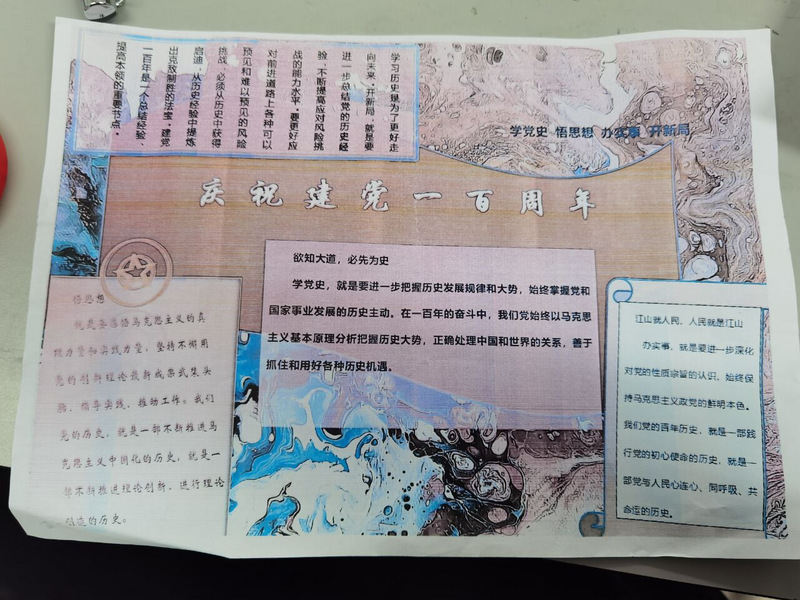 学习历史是为了更好走
向未来。开新局,就是要
进一步总结党的历史经
验,不断提高应对风险挑
战的能力水平。要更好应
对前进道路上各种可以
预见和难以预见的风险
挑战,必须从历史中获得
启迪,从历史经验中提炼
出克敌制胜的法宝。建党
一百年是一个总结经验
提高本领的重要节点。
学党史 悟思想 办实事 开新局
庆祝建党一百周年
欲知大道,必先为史
学党史,就是要进一步把握历史发展规律和大势,始终掌握党和
国家事业发展的历史主动。在一百年的奋斗中,我们党始终以马克思
主义基本原理分析把握历史大势,正确处理中国和世界的关系,善于
抓住和用好各种历史机遇。
悟思想
就是要感悟马克思主义的真
理力量和实践力量,坚持不懈用
党的创新理论最新成果武装头
脑、指导实践、推动工作。我们
党的历史,就是一部不断推进马
克思主义中国化的历史,就是一
部不断推进理论创新、进行理论
创造的历史。
江山就人民,人民就是江山
办实事,就是要进一步深化
对党的性质宗旨的认识,始终保
持马克思主义政党的鲜明本色。
我们党的百年历史,就是一部践
行党的初心使命的历史,就是一
部党与人民心连心、同呼吸、共
命运的历史。